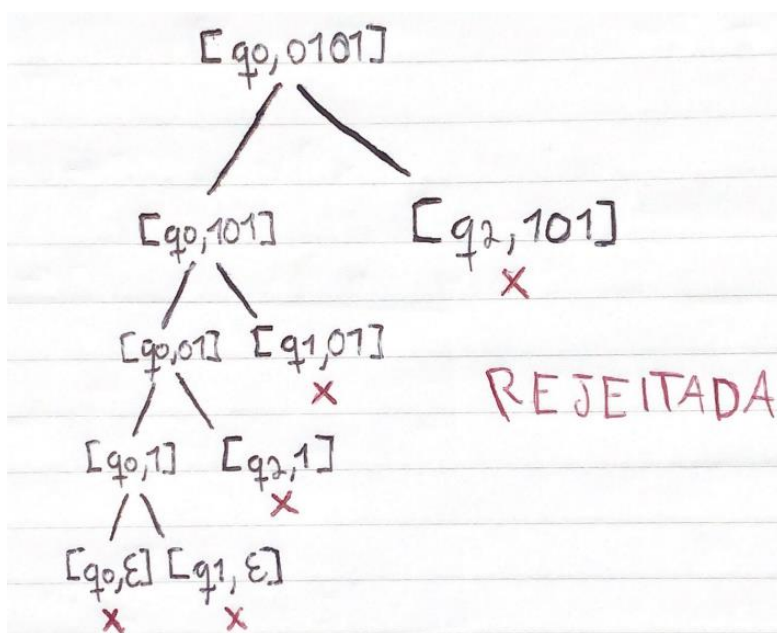 [q0,0101]
[q0,101] [q2,101]
X
[q0,01] [q1,01]
X
REJEITADA
[q0,1] [q2,1]
X
[q0,ε] [q1,ε]
X X